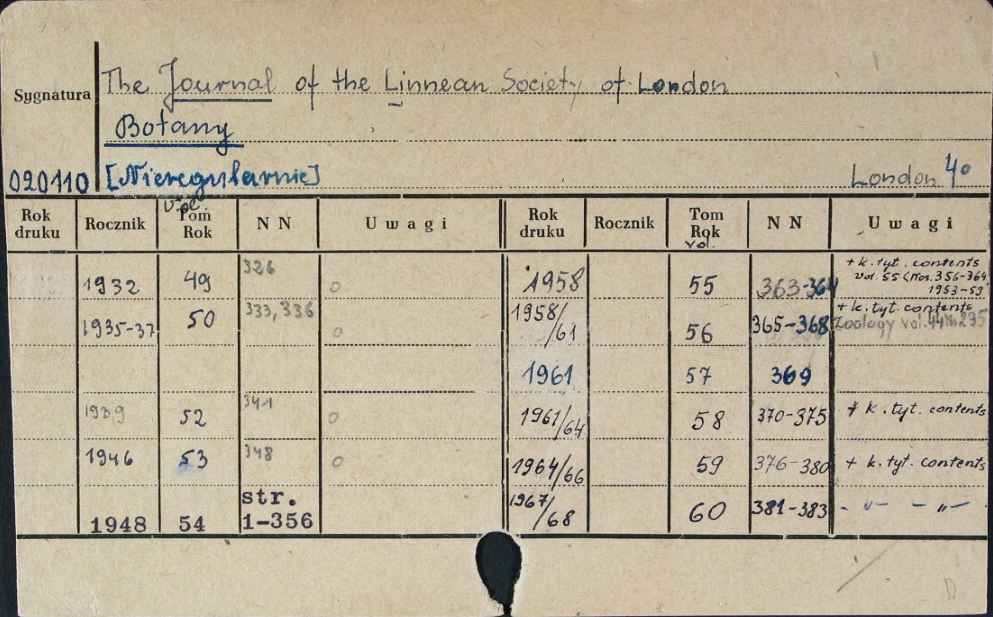 The Journal of the Linnean Society of London
Sygnatura
Botany
020110 [Nieregularnie] London 4°
Rok druku Rocznik Tom Rok NN Uwagi Rok druku Rocznik Tom Rok vol. NN Uwagi
1932 49 326 o 1958 55 363-364 + k. tyt. contents
vol. 55 (Nos. 356-364
1953-59
1935-37 50 333,336 o 1958/61 56 365-368 + k. tyt. contents
Zoology vol. 44 No 295
1961 57 369
1939 52 341 o 1961/64 58 370-375 + k. tyt. contents
1946 53 348 o 1964/66 59 376-380 + k. tyt. contents
1948 54 str. 1-356 1967/68 60 381-383 - „ - - „ -